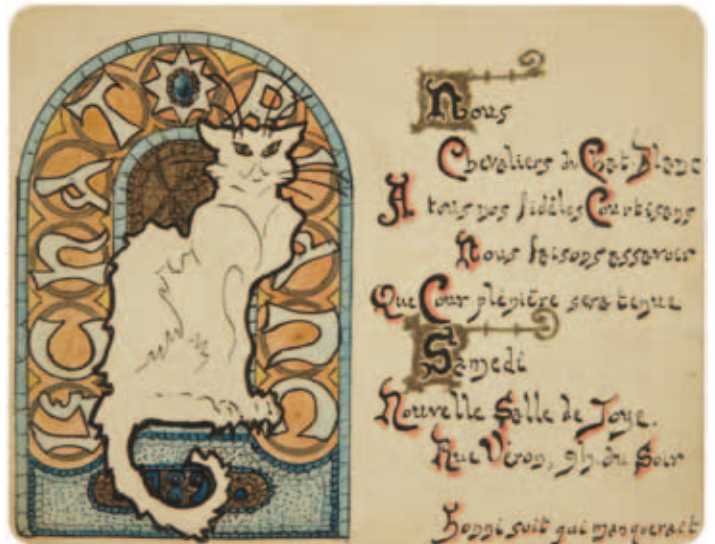 LE CHAT BLANC
189
Nous
Chevaliers du Chat-Blanc
A tous nos fidèles Courtisans
Nous faisons assavoir
Que Cour plénière sera tenue
Samedi
Nouvelle Salle de Joye.
Rue Véron, 9h. du Soir
Honni soit qui manquerait